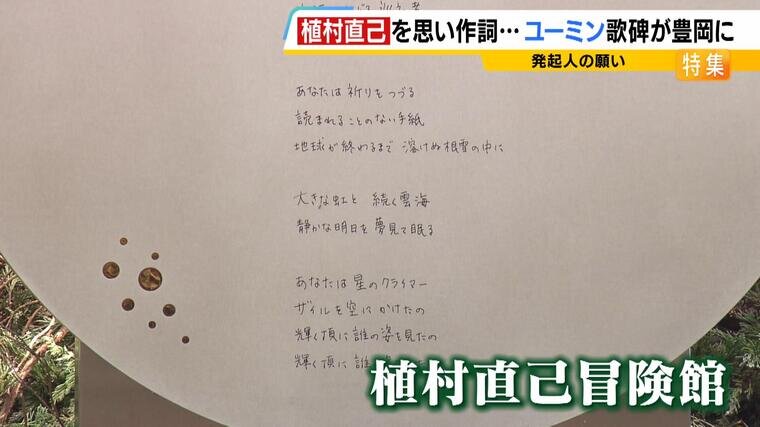 植村直己を思い作詞… ユーミン歌碑が豊岡に
発起人の願い
特集
あなたは祈りをつづる
読まれることのない手紙
地球が終わるまで 溶けぬ根雪の中に
大きな虹と 続く雲海
静かな明日を夢見て眠る
あなたは星のクライマー
ザイルを空にかけたの
輝く頂に誰の姿を見たの
輝く頂に誰
植村直己冒険館